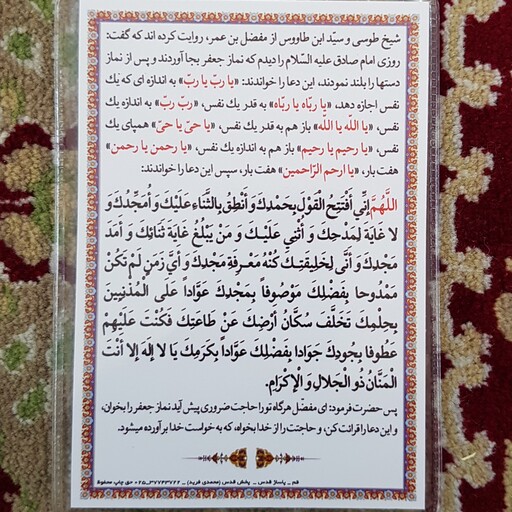 شیخ طوسی و سیّد ابن طاووس از مفضل بن عمر، روایت کرده اند که گفت:
روزی امام صادق علیه السّلام را دیدم که نماز جعفر بجا آوردند و پس از نماز
دستها را بلند نمودند، این دعا را خواندند: «یا رَبّ یا رَبّ» به اندازه ای که یك
نفس اجازه دهد، «یا ربّاه یا ربّاه» به قدر یك نفس، «ربّ ربّ» به اندازه یك
نفس، «یا اللّه یا اللّه» باز هم به قدر یك نفس، «یا حیّ یا حیّ» همپای یك
نفس، «یا رحیم یا رحیم» باز هم به اندازه یك نفس، «یا رحمن یا رحمن»
هفت بار، «یا ارحم الرّاحمین» هفت بار، سپس این دعا را خواندند:
اَللّٰهُمَّ إِنِّي أَفْتَتِحُ الْقَوْلَ بِحَمْدِكَ وَ أَنْطِقُ بِالثَّنَاءِ عَلَيْكَ وَ أُمَجِّدُكَ وَ
لا غَايَةَ لِمَدْحِكَ وَ أُثْنِي عَلَيْكَ وَ مَنْ يَبْلُغُ غَايَةَ ثَنَائِكَ وَ أَمَدَ
مَجْدِكَ وَ أَنَّى لِخَلِيقَتِكَ كُنْهُ مَعْرِفَةِ مَجْدِكَ وَ أَيَّ زَمَنٍ لَمْ تَكُنْ
مَمْدُوحا بِفَضْلِكَ مَوْصُوفاً بِمَجْدِكَ عَوَّاداً عَلَى الْمُذْنِبِينَ
بِحِلْمِكَ تَخَلَّفَ سُكَّانُ أَرْضِكَ عَنْ طَاعَتِكَ فَكُنْتَ عَلَيْهِمْ
عَطُوفا بِجُودِكَ جَوَادا بِفَضْلِكَ عَوَّاداً بِكَرَمِكَ يَا لا إِلَهَ إِلا أَنْتَ
الْمَنَّانُ ذُو الْجَلالِ وَ الْإِكْرَامِ.
پس حضرت فرمود: ای مفضّل هرگاه تو را حاجت ضروری پیش آید نماز جعفر را بخوان،
و این دعا را قرائت کن، و حاجتت را از خدا بخواه، که به خواست خدا برآورده میشود.
قم _ پاساژ قدس _ پخش قدس (محمدی فرید) _ ۳۷۷۴۳۷۲۲_۰۲۵ حق چاپ محفوظ